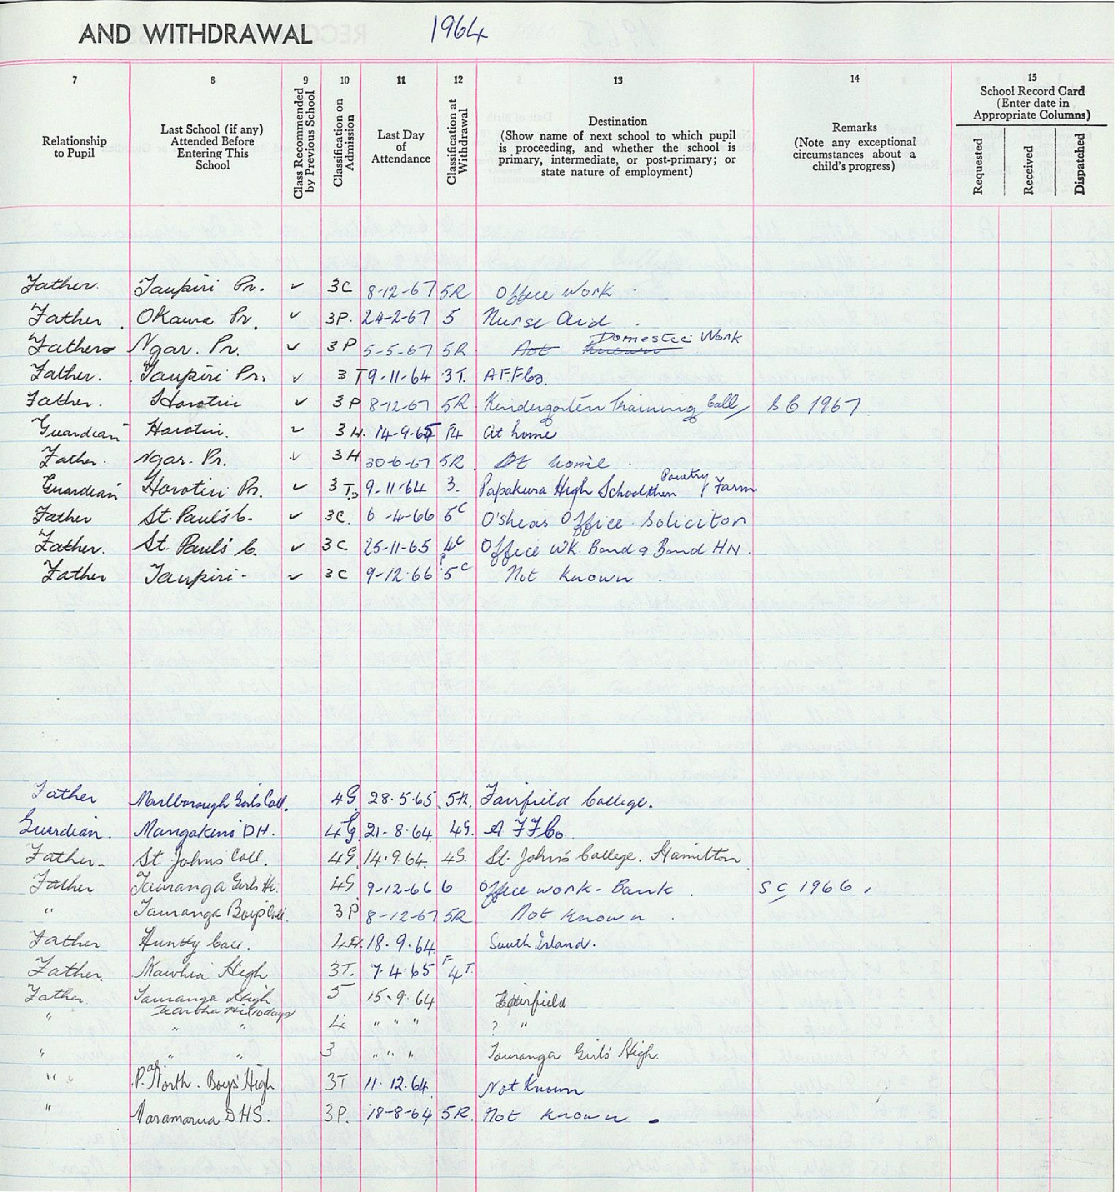 AND WITHDRAWAL 1964
7 8 9 10 11 12 13 14 15
Relationship to Pupil
Last School (if any) Attended Before Entering This School
Class Recommended by Previous School
Classification on Admission
Last Day of Attendance
Classification at Withdrawal
Destination
(Show name of next school to which pupil is proceeding, and whether the school is primary, intermediate, or post-primary; or state nature of employment)
Remarks
(Note any exceptional circumstances about a child's progress)
School Record Card
(Enter date in Appropriate Columns)
Requested Received Dispatched
Father. Taupiri Pr. ✓ 3C 8-12-67 5R Office Work
Father. Okawa Pr. ✓ 3P. 24-2-67 5 Nurse Aid
Father Ngar. Pr. ✓ 3P 5-5-67 5R Not Known Domestic Work
Father. Taupiri Pr. ✓ 3T 9-11-64 3T. AFFCo.
Father. Horotiu ✓ 3P 8-12-67 5R Kindergarten Training Coll 1967
Guardian Horotiu. ✓ 3H. 14-9-65 At home
Father. Ngar. Pr. ✓ 3H 30-6-67 5R At home
Guardian Horotiu Pr. ✓ 3T. 9-11-64 3. Papakura High School then Poultry Farm
Father St. Paul's C. ✓ 3C. 6-4-66 5C O'sheas Office Solicitor
Father. St. Paul's C. ✓ 3C 25-11-65 4C Office WK Band & Band HN.
Father Taupiri - ✓ 3C 9-12-66 5C Not Known
Father Marlborough Girls Coll. 4G 28-5-65 5R. Fairfield College.
Guardian. Mangakino DH. 4G 21-8-64 4G. AFFCo
Father - St Johns Coll. 4G 14-9-64 4G St. John's College. Hamilton
Father Tauranga Girls H. 4G 9-12-66 6 Office work - Bank. SC 1966.
" Tauranga Boys Coll. 3P 8-12-67 5R Not Known.
Father Huntly Coll. 18-9-64 South Island.
Father Kawhia High 3T. 7-4-65 4T.
Father. Tauranga High 5 15-9-64 Fairfield
" " " 4 " " " ? "
" " " 3 " " " Tauranga Girls High.
" P. North. Boys High 3T 11-12-64 Not Known
" DHS. 3P. 18-8-64 5R Not Known.